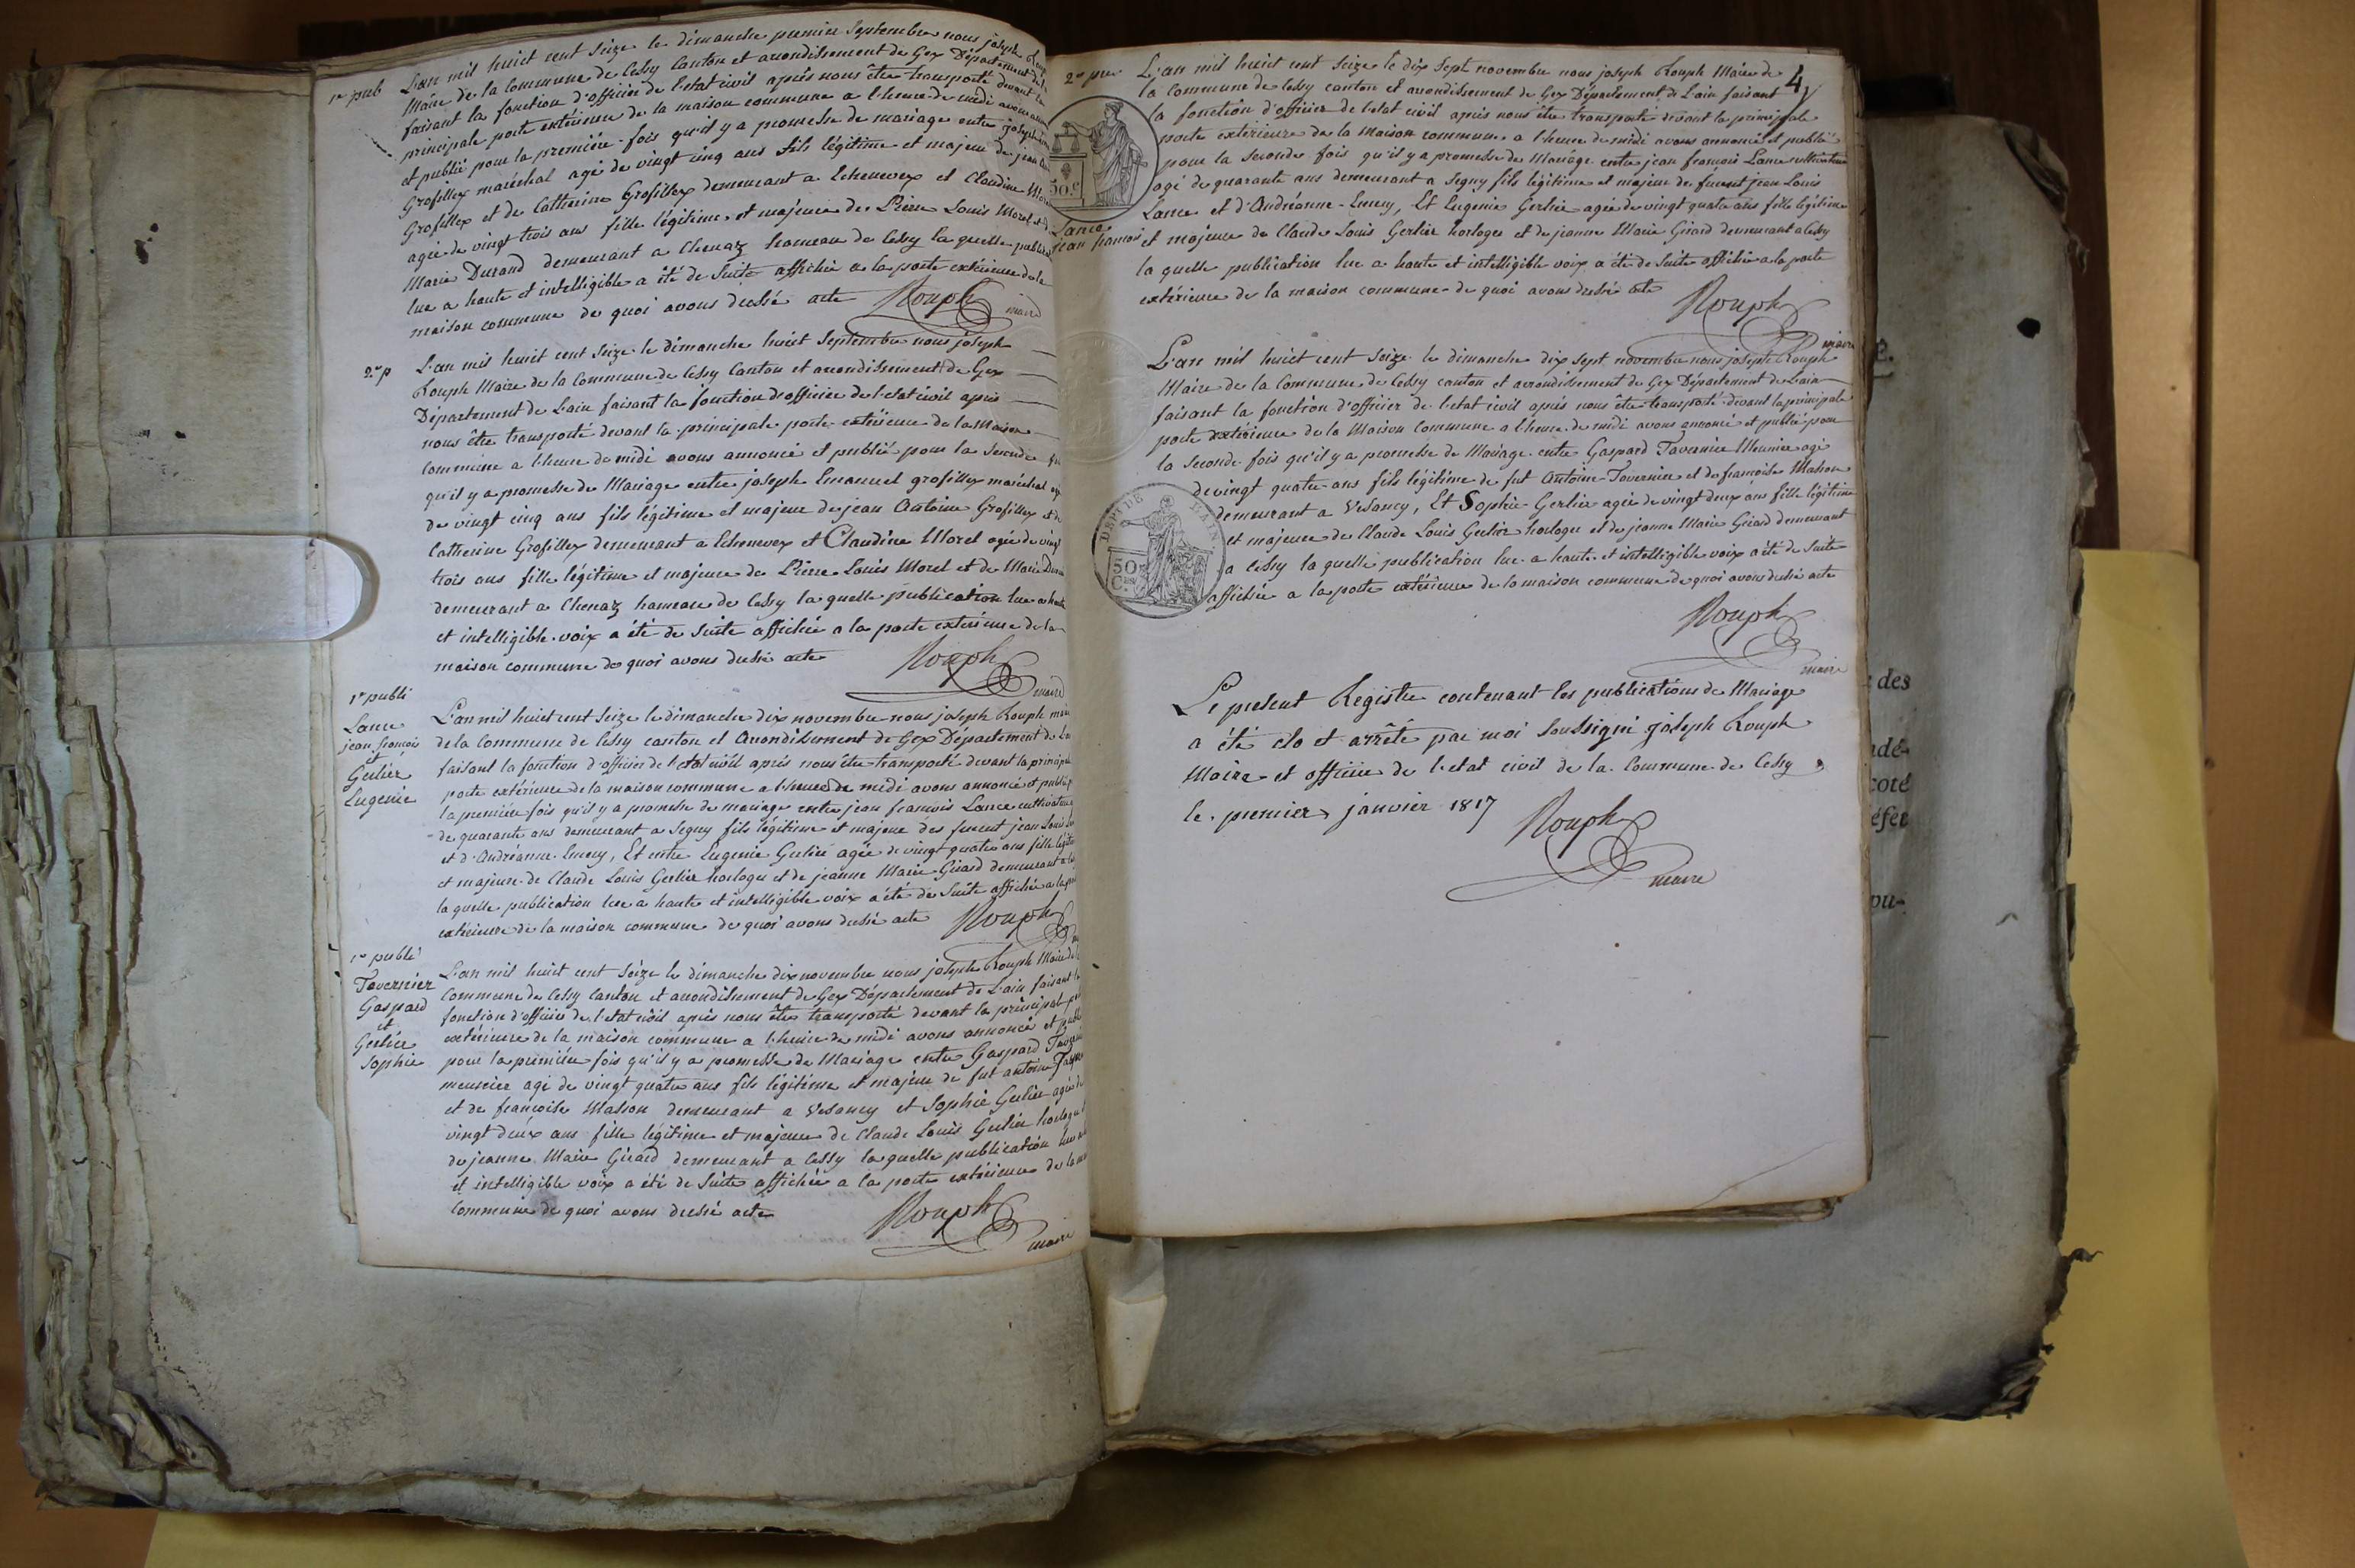 1re pub
L'an mil huict cent seize le dimanche premier Septembre nous joseph
Maire de la Commune de Cessy Canton et arrondissement de Gex Département de
faisant la fonction d'officier de l'etat civil après nous être transporté devant la
principale porte extérieure de la maison commune a l'heure de midi avons
et publié pour la première fois qu'il y a promesse de mariage entre joseph
Grosfillex maréchal agé de vingt cinq ans fils légitime et majeur de jean
Grosfillex et de Catherine Grosfillex demeurant a Echenevex et Claudine
agée de vingt trois ans fille légitime et majeure de Pierre Louis Morel et de
Marie Durand demeurant a Chenaz hameau de Cessy la quelle
lue a haute et intelligible a été de Suite affichée a la porte extérieure de la
maison commune de quoi avons dressé acte Rouph
maire
2me p
L'an mil huict cent Seize le dimanche huict Septembre nous joseph
Rouph Maire de la Commune de Cessy Canton et arrondissement de Gex
Département de L'ain faisant la fonction d'officier de l'etat civil après
nous être transporté devant la principale porte extérieure de la Maison
Commune a l'heure de midi avons annoncé et publié pour la Seconde
qu'il y a promesse de Mariage entre joseph Emanuel grosfillex maréchal
de vingt cinq ans fils légitime et majeur de jean Antoine Grosfillex et de
Catherine Grosfillex demeurant a Echenevex et Claudine Morel agée de vingt
trois ans fille légitime et majeure de Pierre Louis Morel et de Marie
demeurant a Chenaz hameau de Cessy la quelle publication lue a haute
et intelligible voix a été de Suite affichée a la porte extérieure de la
maison commune de quoi avons dressé acte Rouph
maire
1re publi
Lance
jean françois
et
Gerlier
Eugenie
L'an mil huict cent Seize le dimanche dix novembre nous joseph Rouph
de la Commune de Cessy canton et Arrondissement de Gex Département de
faisant la fonction d'officier de l'etat civil après nous être transporté devant la
porte extérieure de la maison commune a l'heure de midi avons annoncé et
la première fois qu'il y a promesse de mariage entre jean françois Lance
de quarante ans demeurant a Segny fils légitime et majeur des furent jean Louis
et d'Andréanne Emery, Et entre Eugenie Gerlier agée de vingt quatre ans fille
et majeure de Claude Louis Gerlier horloger et de jeanne Marie Girard demeurant a
la quelle publication lue a haute et intelligible voix a été de Suite affichée a la
extérieure de la maison commune de quoi avons dressé acte Rouph
1re publi
Tavernier
Gaspard
et
Gerlier
Sophie
L'an mil huict cent Seize le dimanche dix novembre nous joseph Rouph Maire de
Commune de Cessy Canton et arrondissement de Gex Département de L'ain faisant
fonction d'officier de l'etat civil après nous être transporté devant la principal
extérieure de la maison commune a l'heure de midi avons annoncé et
pour la première fois qu'il y a promesse de Mariage entre Gaspard
meunier agé de vingt quatre ans fils légitime et majeur de fut antoine
et de françoise Masson demeurant a Vesancy et Sophie Gerlier agée de
vingt deux ans fille légitime et majeure de Claude Louis Gerlier
de jeanne Marie Girard demeurant a Cessy la quelle publication
et intelligible voix a été de Suite affichée a la porte extérieure de la
Commune de quoi avons dressé acte
Rouph
maire
4
L'an mil huict cent Seize le dix Sept novembre nous joseph Rouph Maire de
la Commune de Cessy canton et arrondissement de Gex Département de L'ain faisant
la fonction d'officier de l'etat civil après nous être transporté devant la principale
porte extérieure de la maison commune a l'heure de midi avons annoncé et publié
pour la Seconde fois qu'il y a promesse de Mariage entre jean françois Lance cultivateur
agé de quarante ans demeurant a Segny fils légitime et majeur de furent jean Louis
Lance et d'Andréanne Emery, Et Eugénie Gerlier agée de vingt quatre ans fille légitime
et majeure de Claude Louis Gerlier horloger et de jeanne Marie Girard demeurant a Cessy
la quelle publication lue a haute et intelligible voix a été de Suite affichée a la porte
extérieure de la maison commune de quoi avons dressé acte
Rouph
maire
50 c
Lance
jean françois
L'an mil huict cent Seize le dimanche dix sept novembre nous joseph Rouph
Maire de la Commune de Cessy canton et arrondissement de Gex Département de L'ain
faisant la fonction d'officier de l'etat civil après nous être transporté devant la principale
porte extérieure de la Maison Commune a l'heure de midi avons annoncé et publié pour
la Seconde fois qu'il y a promesse de Mariage entre Gaspard Tavernier Meunier agé
de vingt quatre ans fils légitime de fut Antoine Tavernier et de françoise Masson
demeurant a Vesancy, Et Sophie Gerlier agée de vingt deux ans fille légitime
et majeure de Claude Louis Gerlier horloger et de jeanne Marie Girard demeurant
a Cessy la quelle publication lue a haute et intelligible voix a été de Suite
affichée a la porte extérieure de la maison commune de quoi avons dressé acte
Rouph
maire
50
C.
Le present Registre contenant les publications de Mariage
a été clo et arrêté par moi Soussigné joseph Rouph
Maire et officier de l'etat civil de la Commune de Cessy
le premier janvier 1817 Rouph
maire
des
coté
pu-